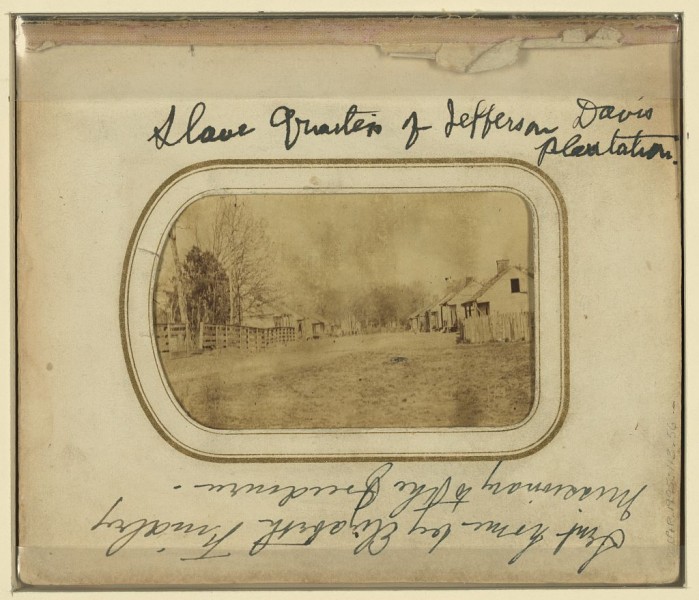 Slave Quarters of Jefferson Davis
plantation.
Sent home by Elizabeth Findley
Missionary to the Freedmen -